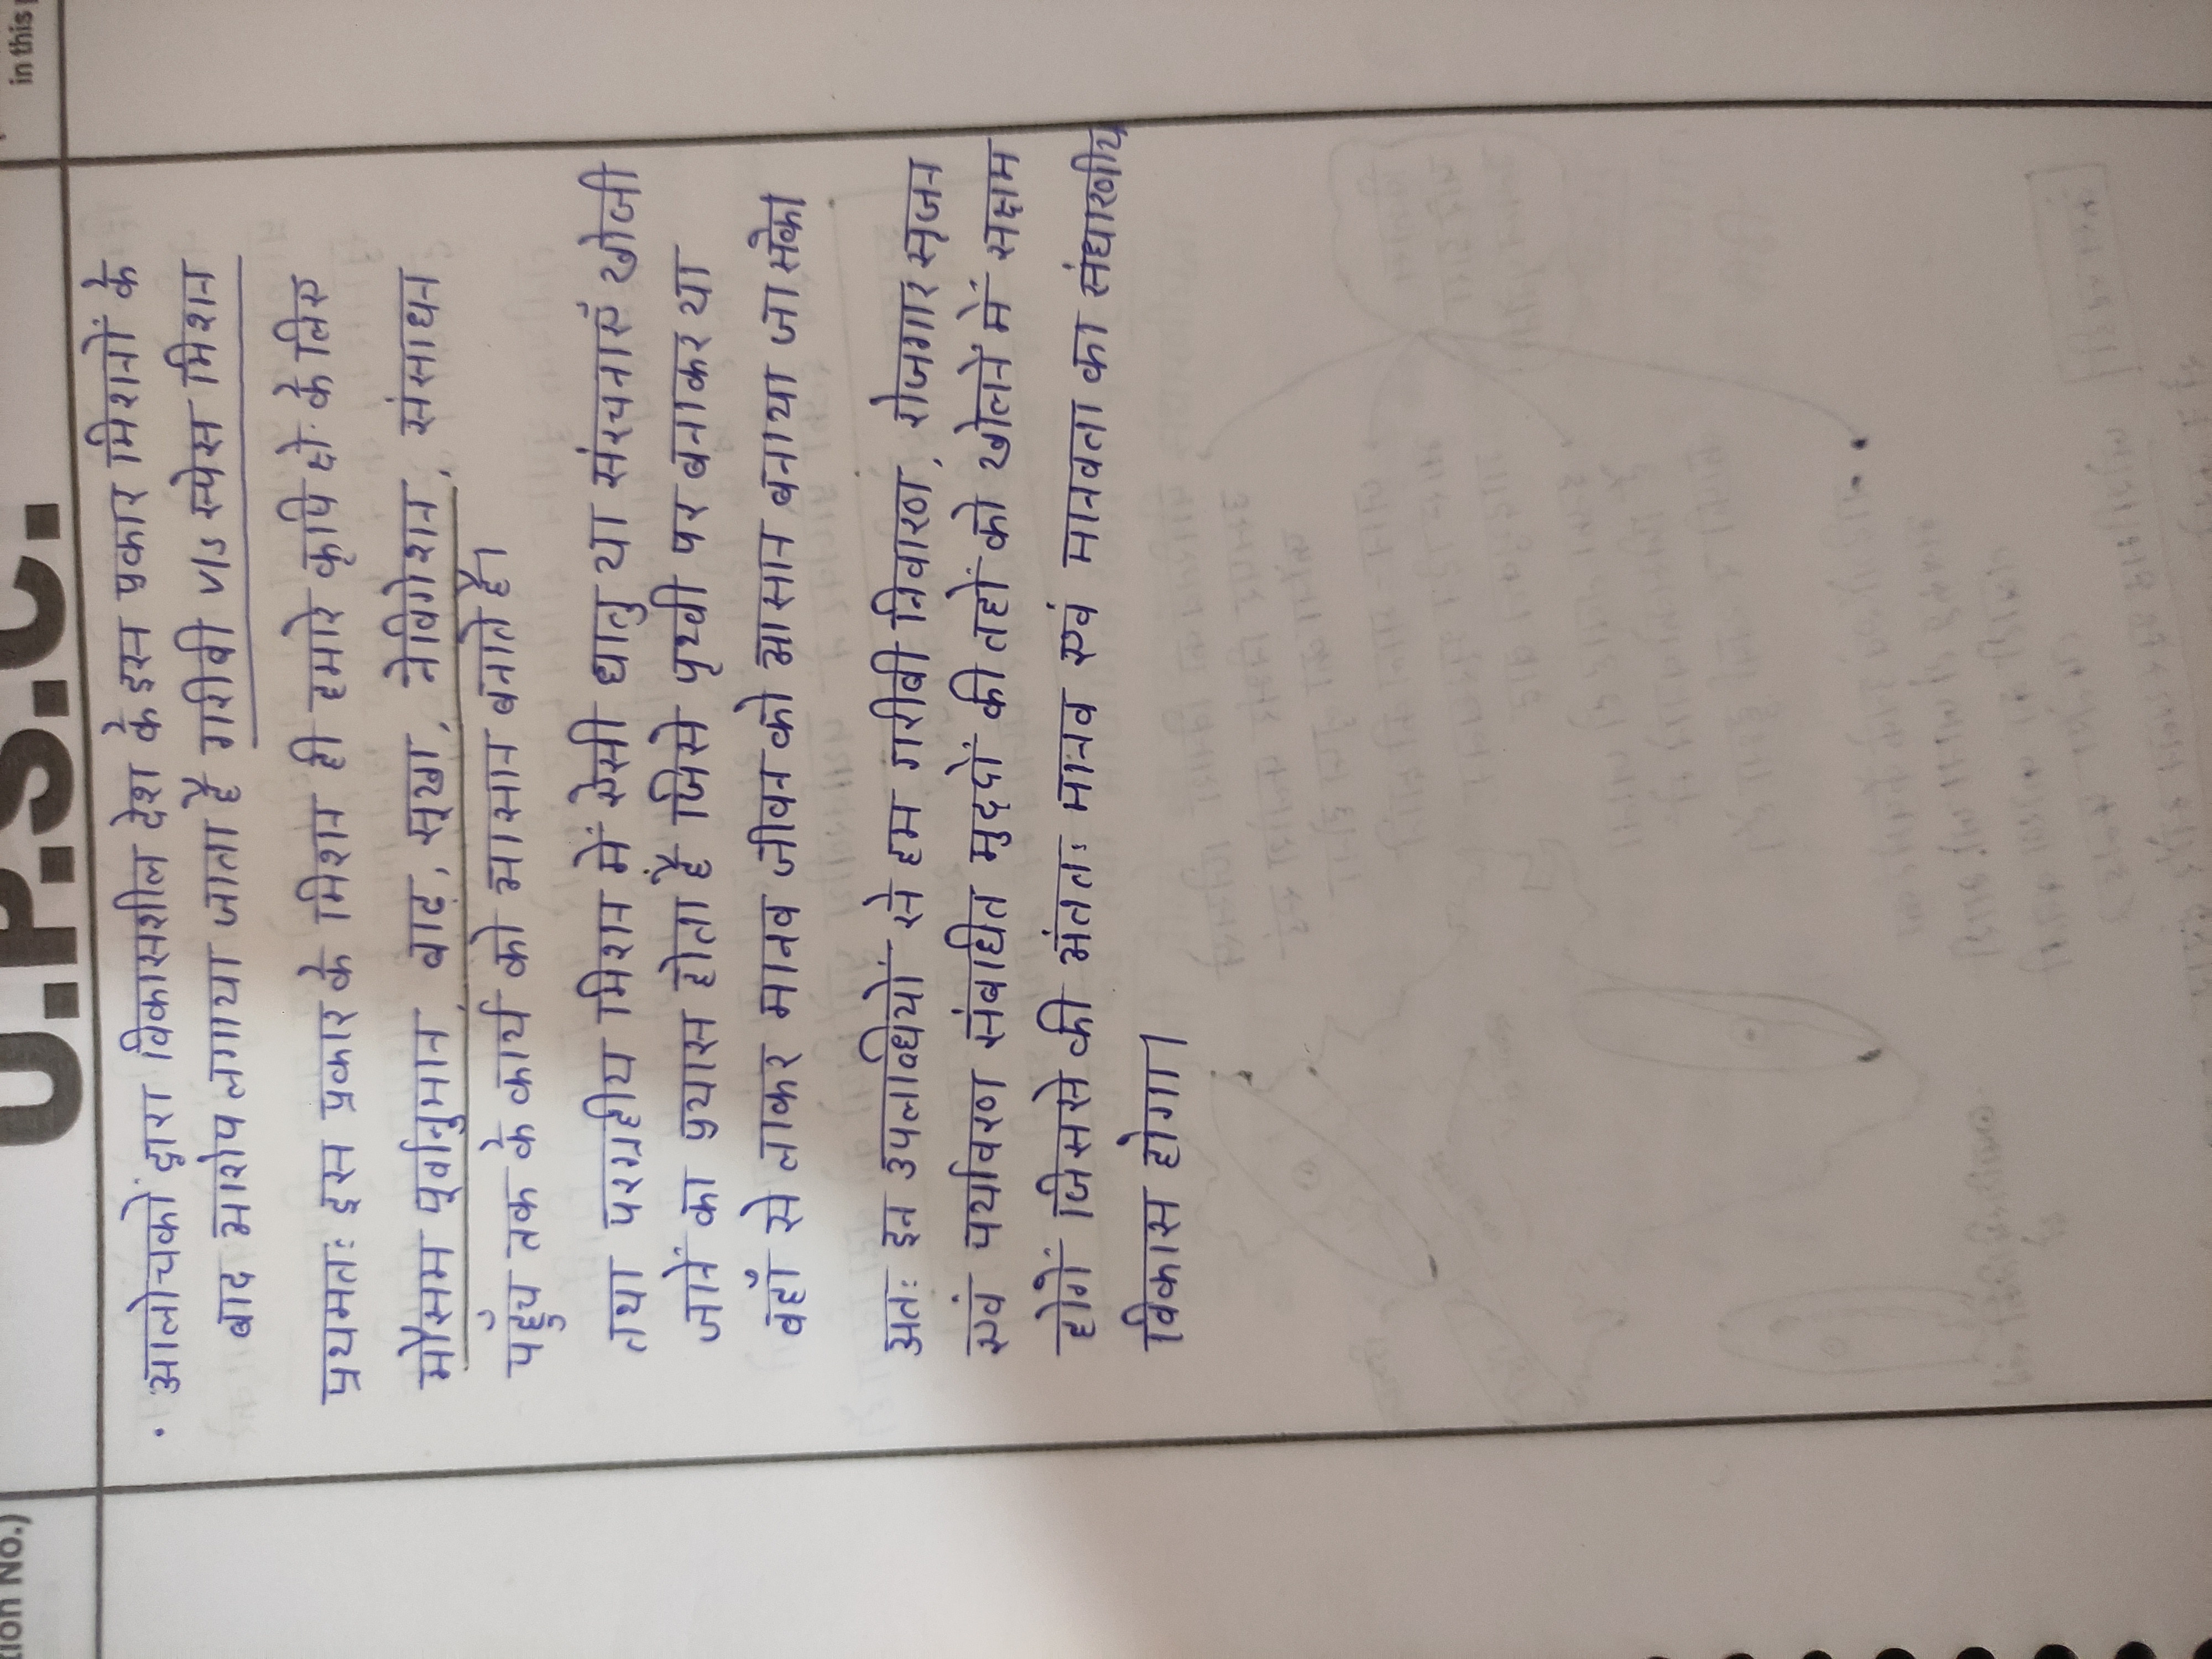 U.P.S.C.
in this
tion No.)
• आलोचकों द्वारा विकासशील देश के इस प्रकार मिशनों के
बाद आरोप लगाया जाता है गरीबी V/s स्पेस मिशन
प्रथमतः इस प्रकार के मिशन ही हमारे कृषि क्षे. के लिए
मौसम पूर्वानुमान, बाढ़, सूखा, नेविगेशन, संसाधन
पहुँच तक के कार्य को आसान बनाते हैं।
तथा परग्रहीय मिशन में ऐसी धातु या संरचनाएँ खोजी
जानें का प्रयास होता है जिसे पृथ्वी पर बनाकर या
वहाँ से लाकर मानव जीवन को आसान बनाया जा सके।
अतः इन उपलब्धियों से हम गरीबी निवारण, रोजगार सृजन
एवं पर्यावरण संबधित मुद्दों की तहों को खोलनें में सक्षम
होगें जिससे की अंततः मानव एवं मानवता का संधारणीय
विकास होगा।